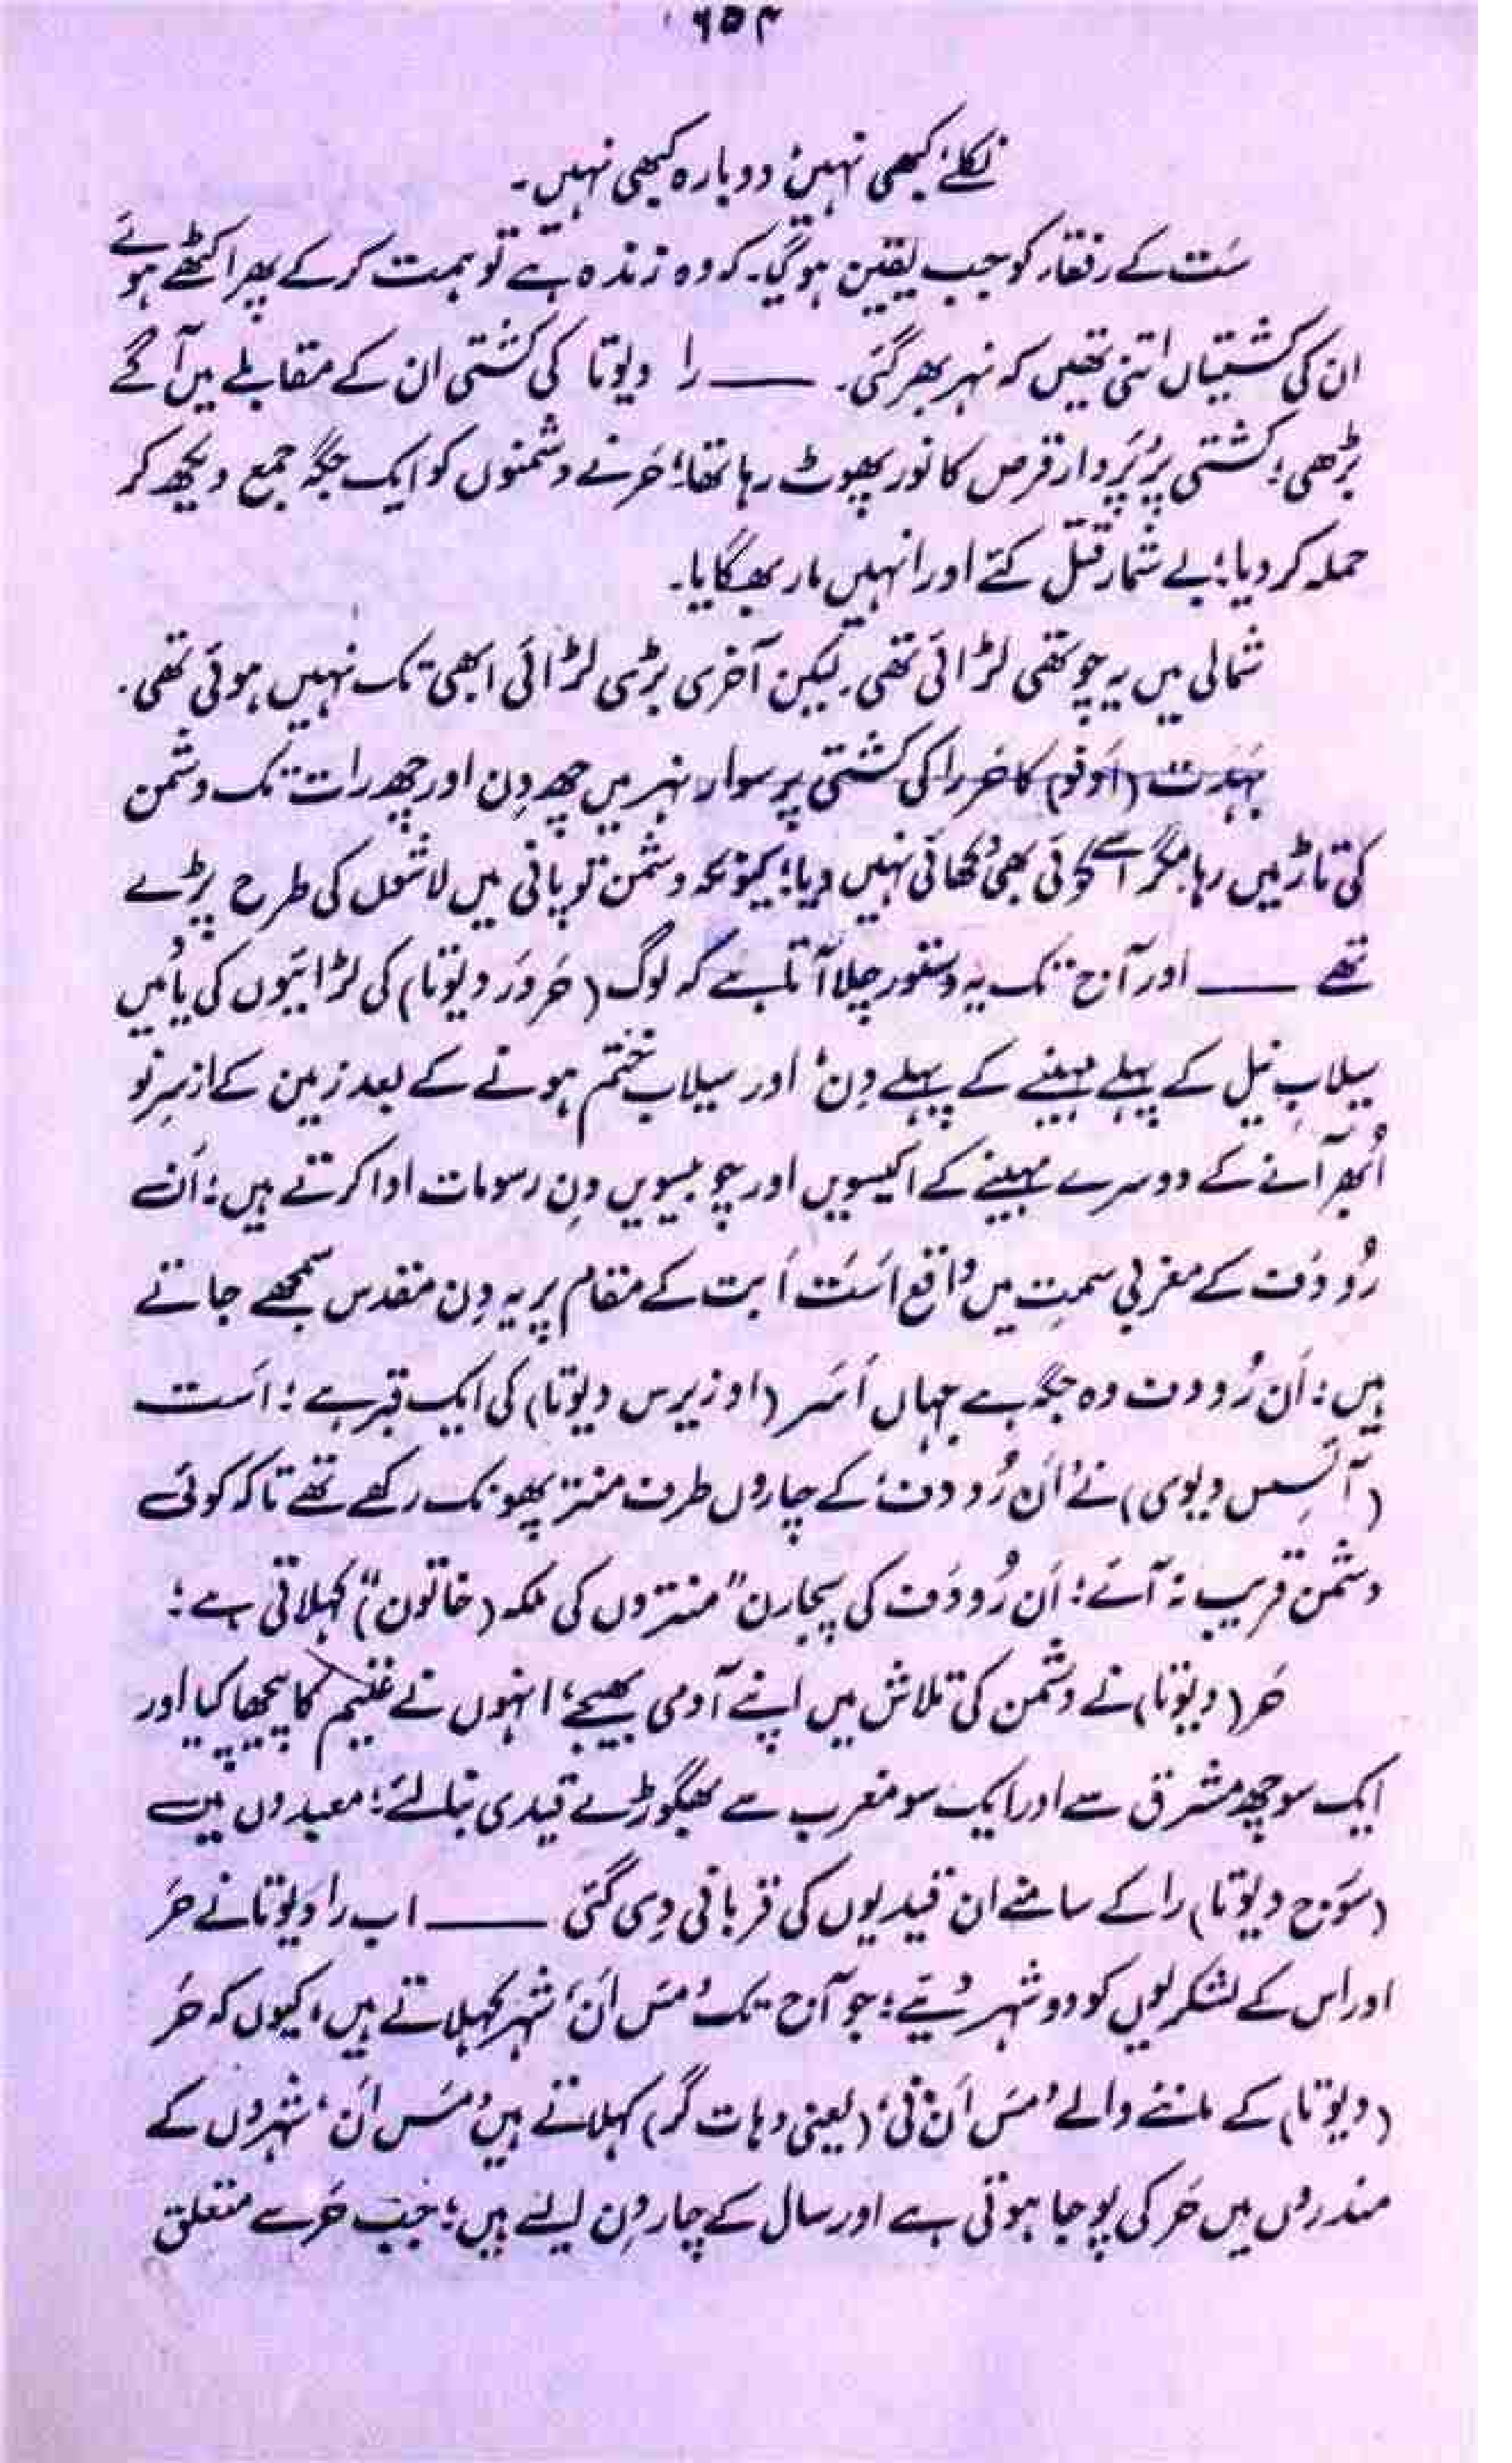 ۶۵۴
نکلے؛ کبھی نہیں دوبارہ کبھی نہیں۔
سَت کے رفقاء کو جب یقین ہو گیا۔ کہ وہ زندہ ہے تو ہمت کر کے پھر اکٹھے ہوئے
ان کی کشتیاں اتنی تھیں کہ نہر بھر گئی۔ ——— را دیوتا کی کشتی ان کے مقابلے میں آگے
بڑھی؛ کشتی پر پَردار قرص کا نور پھوٹ رہا تھا؛ حَر نے دشمنوں کو ایک جگہ جمع دیکھ کر
حملہ کر دیا؛ بے شمار قتل کئے اور انہیں مار بھگایا۔
شمالی میں یہ چوتھی لڑائی تھی۔ لیکن آخری بڑی لڑائی ابھی تک نہیں ہوئی تھی۔
بَہدَت (اَدفو) کا حَر را کی کشتی پر سوار نہر میں چھ دِن اور چھ رات تک دشمن
کی تاڑ میں رہا مگر اسے کوئی بھی دکھائی نہیں دیا؛ کیونکہ دشمن تو پانی میں لاشوں کی طرح پڑے
تھے ——— اور آج تک یہ دستور چلا آتا ہے کہ لوگ (حَر وَر دیوتا) کی لڑائیوں کی یاد میں
سیلابِ نیل کے پہلے مہینے کے پہلے دِن، اور سیلاب ختم ہونے کے بعد زمین کے ازسرِنو
اُبھر آنے کے دوسرے مہینے کے اکیسویں اور چوبیسویں دِن رسومات ادا کرتے ہیں؛ اَن
رُودَف کے مغربی سمت میں واقع اَسَت اَبت کے مقام پر یہ دِن مقدس سمجھے جاتے
ہیں؛ اَن رُودف وہ جگہ ہے جہاں اَسَر (اوزیرس دیوتا) کی ایک قبر ہے؛ اَست
(آئسِس دیوی) نے 'اَن رُودف' کے چاروں طرف منتر پھونک رکھے تھے تاکہ کوئی
دشمن قریب نہ آئے؛ اَن رُودَف کی پجارن "منتروں کی ملکہ (خاتون)" کہلاتی ہے؛
حَر (دیوتا) نے دشمن کی تلاش میں اپنے آدمی بھیجے؛ انہوں نے غنیم کا پیچھا کیا اور
ایک سو چھ مشرق سے اور ایک سو مغرب سے بھگوڑے قیدی بنا لئے؛ معبدوں میں
(سورج دیوتا) را کے سامنے ان قیدیوں کی قربانی دی گئی ——— اب را دیوتا نے حَر
اور اس کے لشکریوں کو دو شہر دئیے؛ جو آج تک 'مَس اَن' شہر کہلاتے ہیں، کیوں کہ حَر
(دیوتا) کے ماننے والے 'مَس اَن تی' (یعنی دہات گر) کہلاتے ہیں 'مَس اَن' شہروں کے
مندروں میں حَر کی پوجا ہوتی ہے اور سال کے چار دِن ایسے ہیں؛ جب حَر سے متعلق